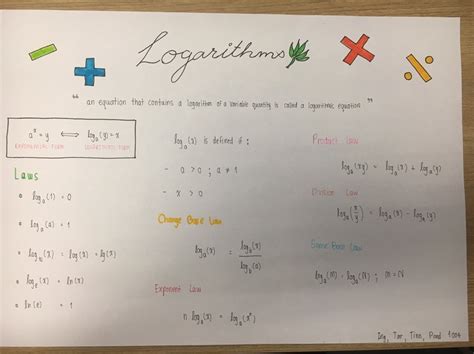 Logarithms
“ an equation that contains a logarithm of a variable quantity is called a logarithmic equation ”
aˣ = y ⟺ logₐ(y) = x
EXPONENTIAL FORM LOGARITHMIC FORM
Laws
logₐ(1) = 0
logₐ(a) = 1
log₁₀(x) = log(x) = lg(x)
logₑ(x) = ln(x)
ln(e) = 1
logₐ(x) is defined if :
- a > 0 ; a ≠ 1
- x > 0
Change Base Law
logₐ(x) = log(x) / log(a)
Exponent Law
n logₐ(x) = logₐ(xⁿ)
Product Law
logₐ(xy) = logₐ(x) + logₐ(y)
Division Law
logₐ(x/y) = logₐ(x) - logₐ(y)
Same Base Law
logₐ(M) = logₐ(N) ; M = N
Tar, Pond 1004